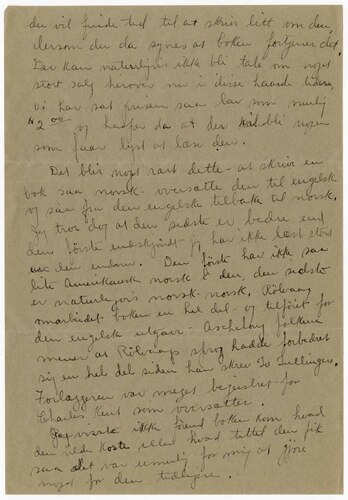 du vil finde tid til at skrive litt om den
dersom du da synes at boken fortjener det.
Der kan naturligvis ikke bli tale om noget
stort salg herover nu i disse haarde tider.
Vi har sat prisen saa lav som mulig
$2.00 og haaper da at der bli nogen
som faar lyst at læse den.
Det blir nogt rart dette - at skrive en
bok saa norsk - oversætte den til engelsk
og saa fra den engelske tilbake til norsk.
Jeg tror dog at den sidste er bedre end
den förste endskjöndt jeg har ikke læst stort
av den endnu. Den förste har ikke saa
lite Amerikansk norsk i den, den sidste
er naturligvis norsk-norsk. Rölvaag
omarbeidet boken en hel del - og tilföiet for
den engelske utgave - Aschehoug folkene
mener at Rölvaags sprog hadde forbedret
sig en hel del siden han skrev To Tullinger.
Forlæggeren var meget begeistret for
Charles Kent som oversætter.
Jeg visste ikke förend boken kom hvad
den vilde koste eller hvad tittel den fik
saa det var umulig for mig at gjöre
noget for den tidligere.